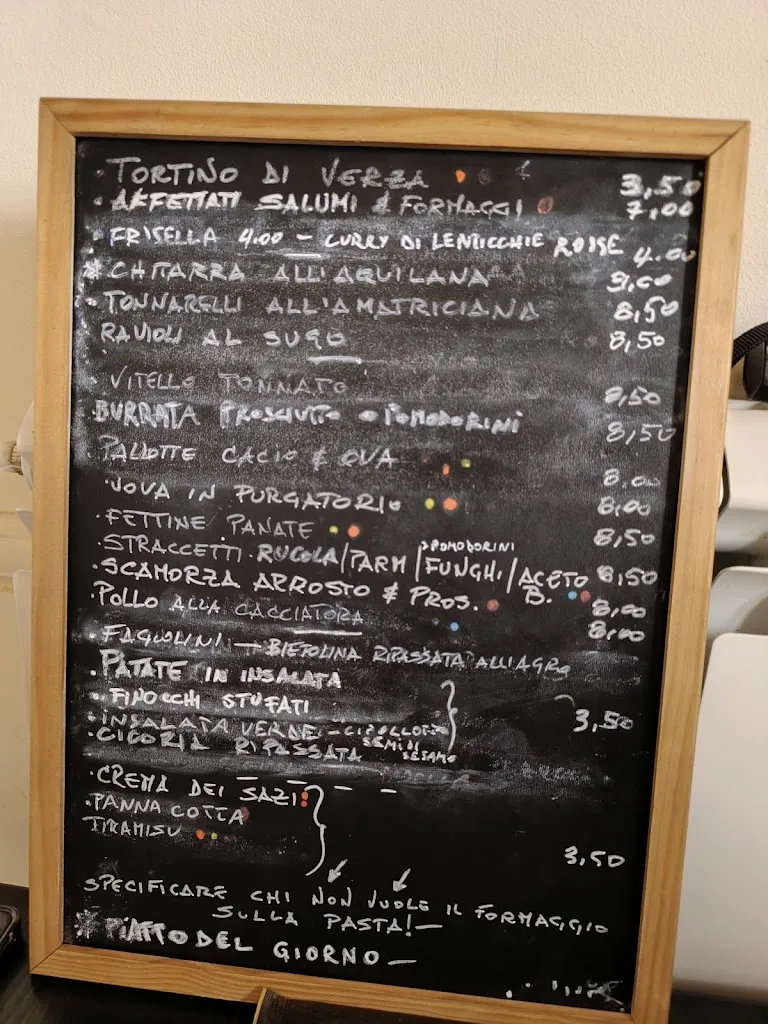 · TORTINO DI VERZA 3,50
· AFFETTATI SALUMI & FORMAGGI 7,00
· FRISELLA 4.00 – CURRY DI LENTICCHIE ROSSE 4.00
* CHITARRA ALL'AQUILANA
· TONNARELLI ALL'AMATRICIANA 8,50
RAVIOLI AL SUGO 8,50
VITELLO TONNATO 8,50
BURRATA PROSCIUTTO e POMODORINI 8,50
PALLOTTE CACIO & OVA 8,00
· UOVA IN PURGATORIO 8,00
· FETTINE PANATE 8,50
> POMODORINI
· STRACCETTI RUCOLA/PARM/FUNGHI/ACETO B. 8,50
· SCAMORZA ARROSTO & PROS. 8,00
· POLLO ALLA CACCIATORA 8,00
· FAGIOLINI – BIETOLINA RIPASSATA ALL'AGRO
· PATATE IN INSALATA
· FINOCCHI STUFATI 3,50
· INSALATA VERDE – CIPOLLOTTO
SEMI DI SESAMO
· CICORIA RIPASSATA
· CREMA DEI SAZI
· PANNA COTTA
TIRAMISU 3,50
SPECIFICARE CHI NON VUOLE IL FORMAGGIO
SULLA PASTA! –
* PIATTO DEL GIORNO –